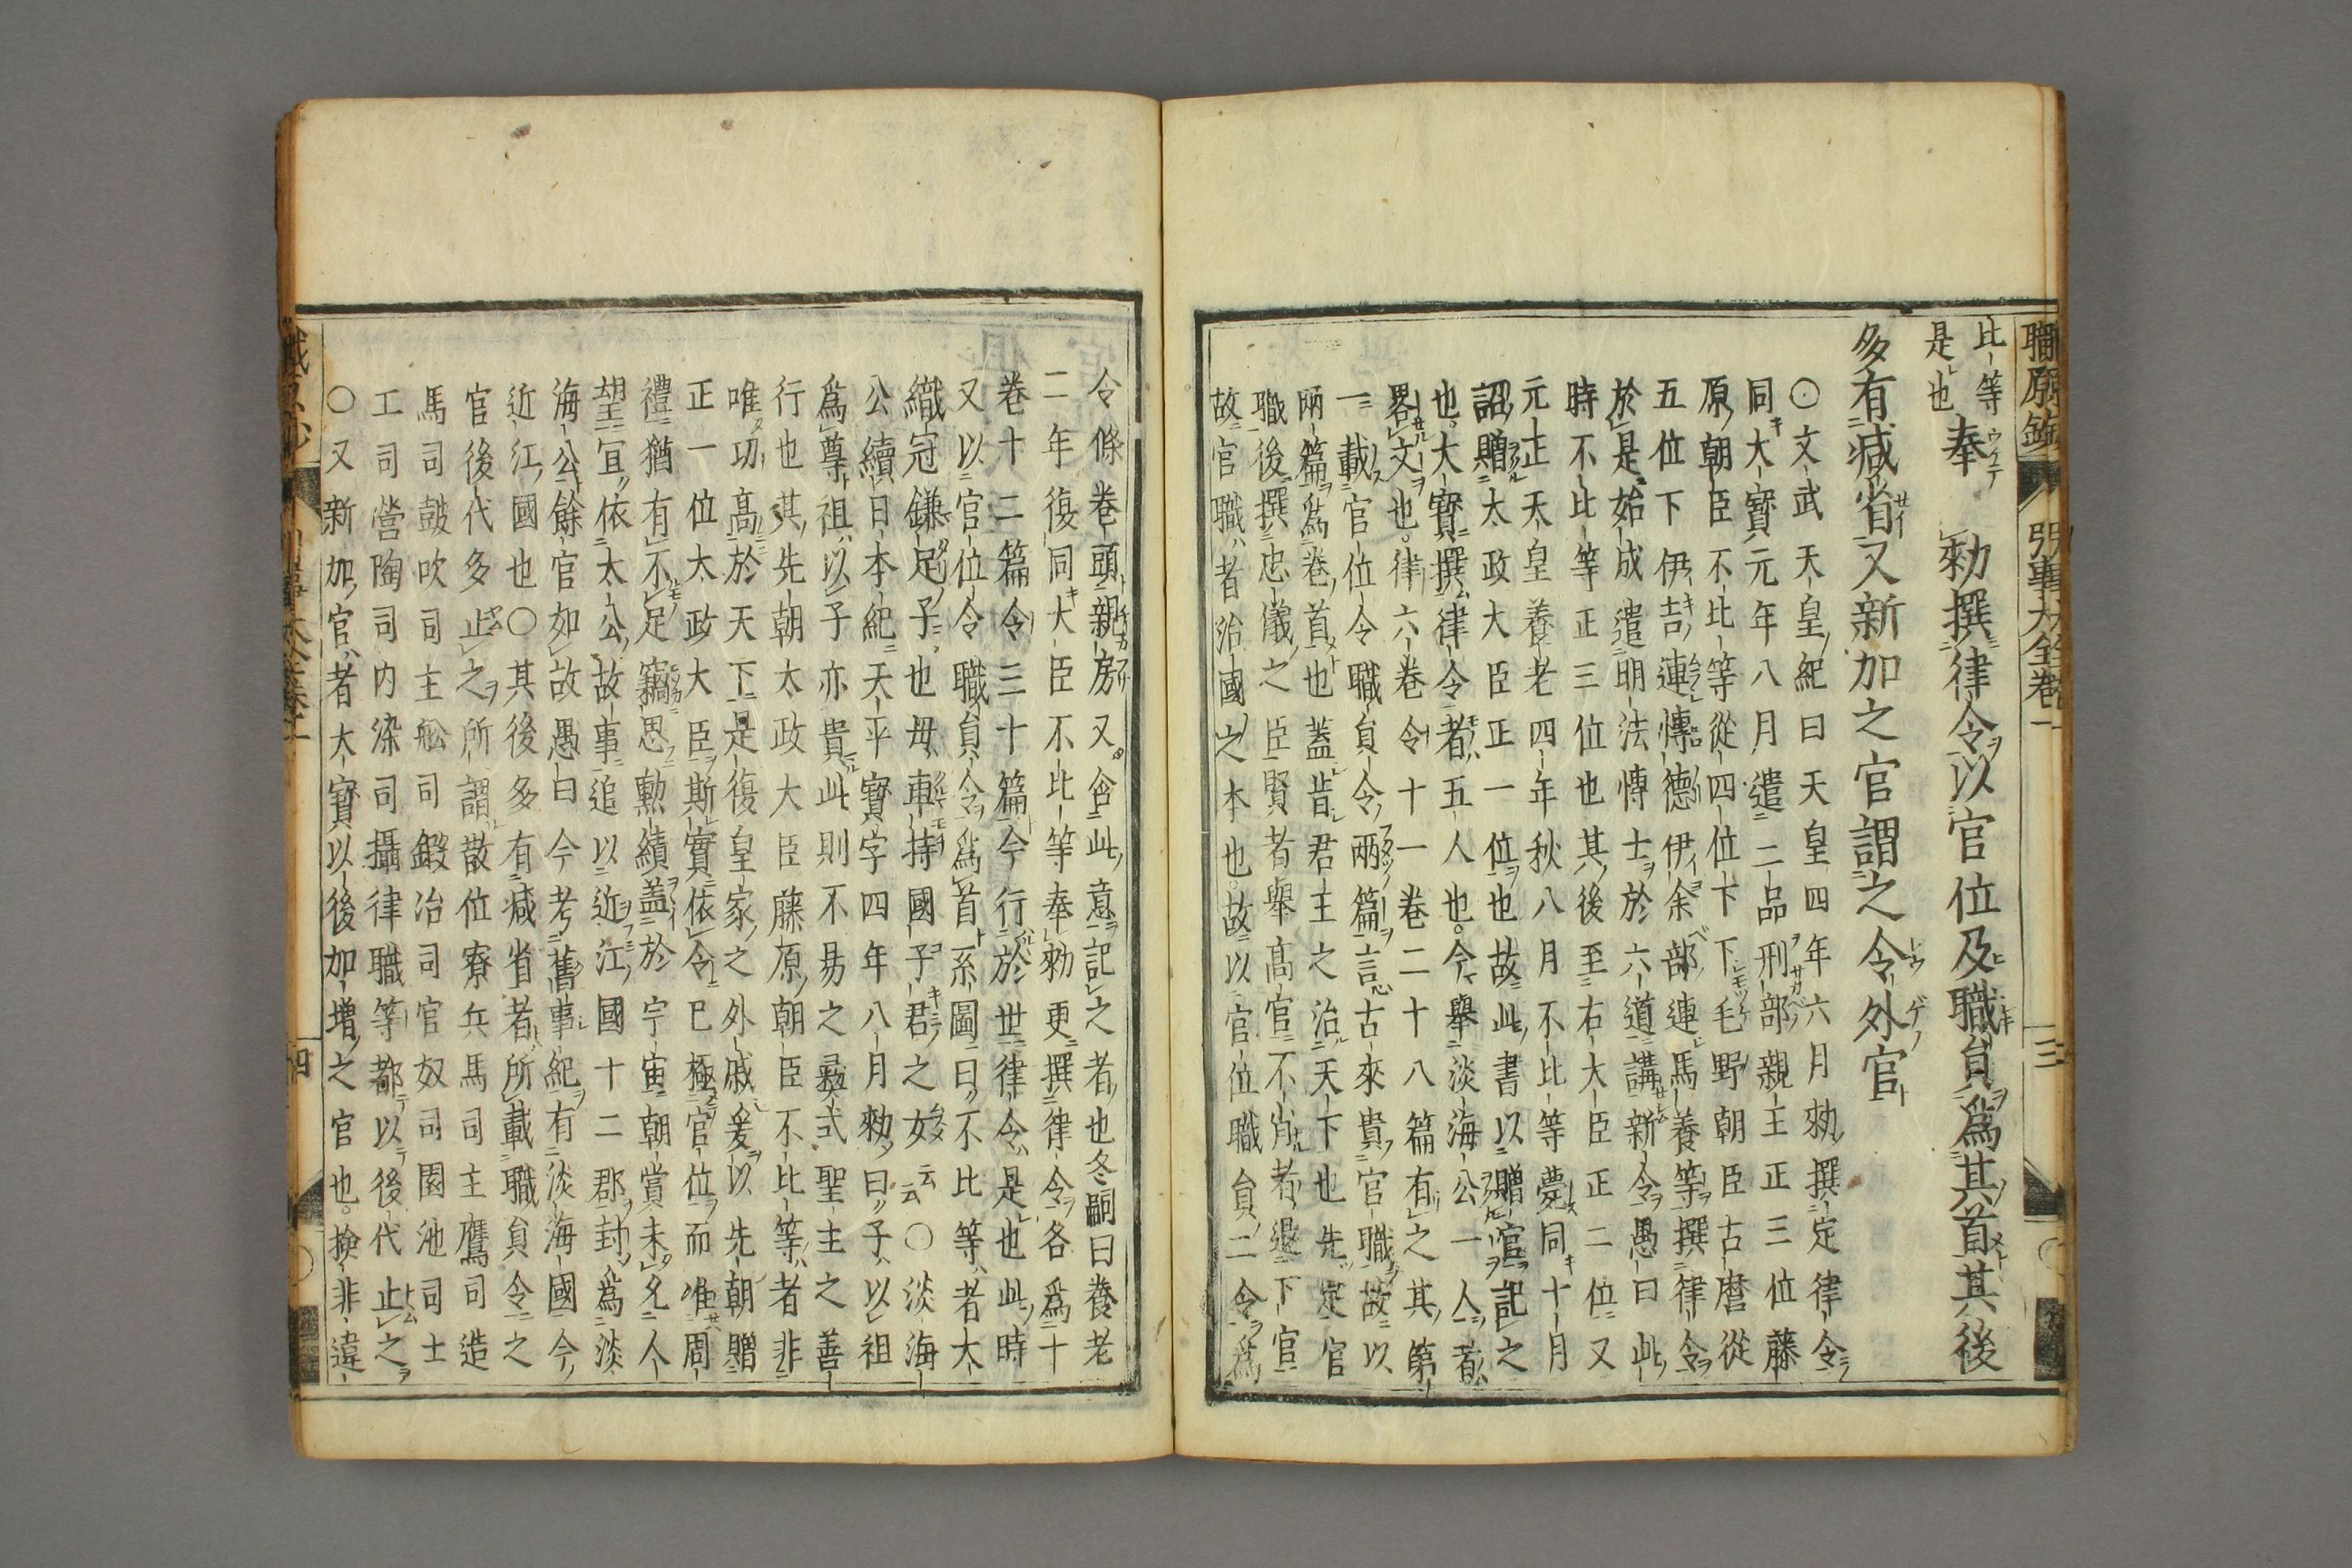 職原鈔 引事大全卷一 三
比等
是也
奉 勑撰律令以官位及職貟爲其首其後
多有減省又新加之官謂之令外官
〇文武天皇紀曰天皇四年六月勑撰定律令
同大寳元年八月遣二品刑部親王正三位藤
原朝臣不比等從四位下下毛野朝臣古麿從
五位下伊吉連慱德伊余部連馬養等撰律令
於是始成遣明法慱士於六道講新令愚曰此
時不比等正三位也其後至右大臣正二位又
元正天皇養老四年秋八月不比等薨同十月
詔贈太政大臣正一位也故此書以贈官記之
也大寳撰律令者五人也今舉淡海公一人者
畧文也律六卷令十一卷二十八篇有之其第
一載官位令職貟令兩篇言古來貴官職故以
兩篇爲卷首也蓋昔君主之治天下也先定官
職後撰忠儀之臣賢者舉高官不肖者退下官
故官職者治國之本也故以官位職貟二令爲
令條卷頭親房又含此意記之者也冬嗣曰養老
二年復同大臣不比等奉勑更撰律令各爲十
卷十二篇令三十篇今行於世律令是也此時
又以官位令職貟令爲首系圖曰不比等者大
織冠鎌足子也母車持國子君之女云云〇淡海
公續日本紀天平寳字四年八月勑曰子以祖
爲尊祖以子亦貴此則不易之彛式聖主之善
行也其先朝太政大臣藤原朝臣不比等者非
唯功高於天下是復皇家之外戚爰以先朝贈
正一位太政大臣斯實依令已極官位而准周
禮猶有不足竊思勲績盖於宇宙朝賞未允人
望宜依太公故事追以近江國十二郡封爲淡
海公餘官如故愚曰今考舊事紀有淡海國今
近江國也〇其後多有減省者所載職貟令之
官後代多止之所謂散位寮兵馬司主鷹司造
馬司鼓吹司主舩司鍛冶司官奴司園池司土
工司營陶司内染司攝律職等都以後代止之
〇又新加官者大寳以後加増之官也撿非違
四